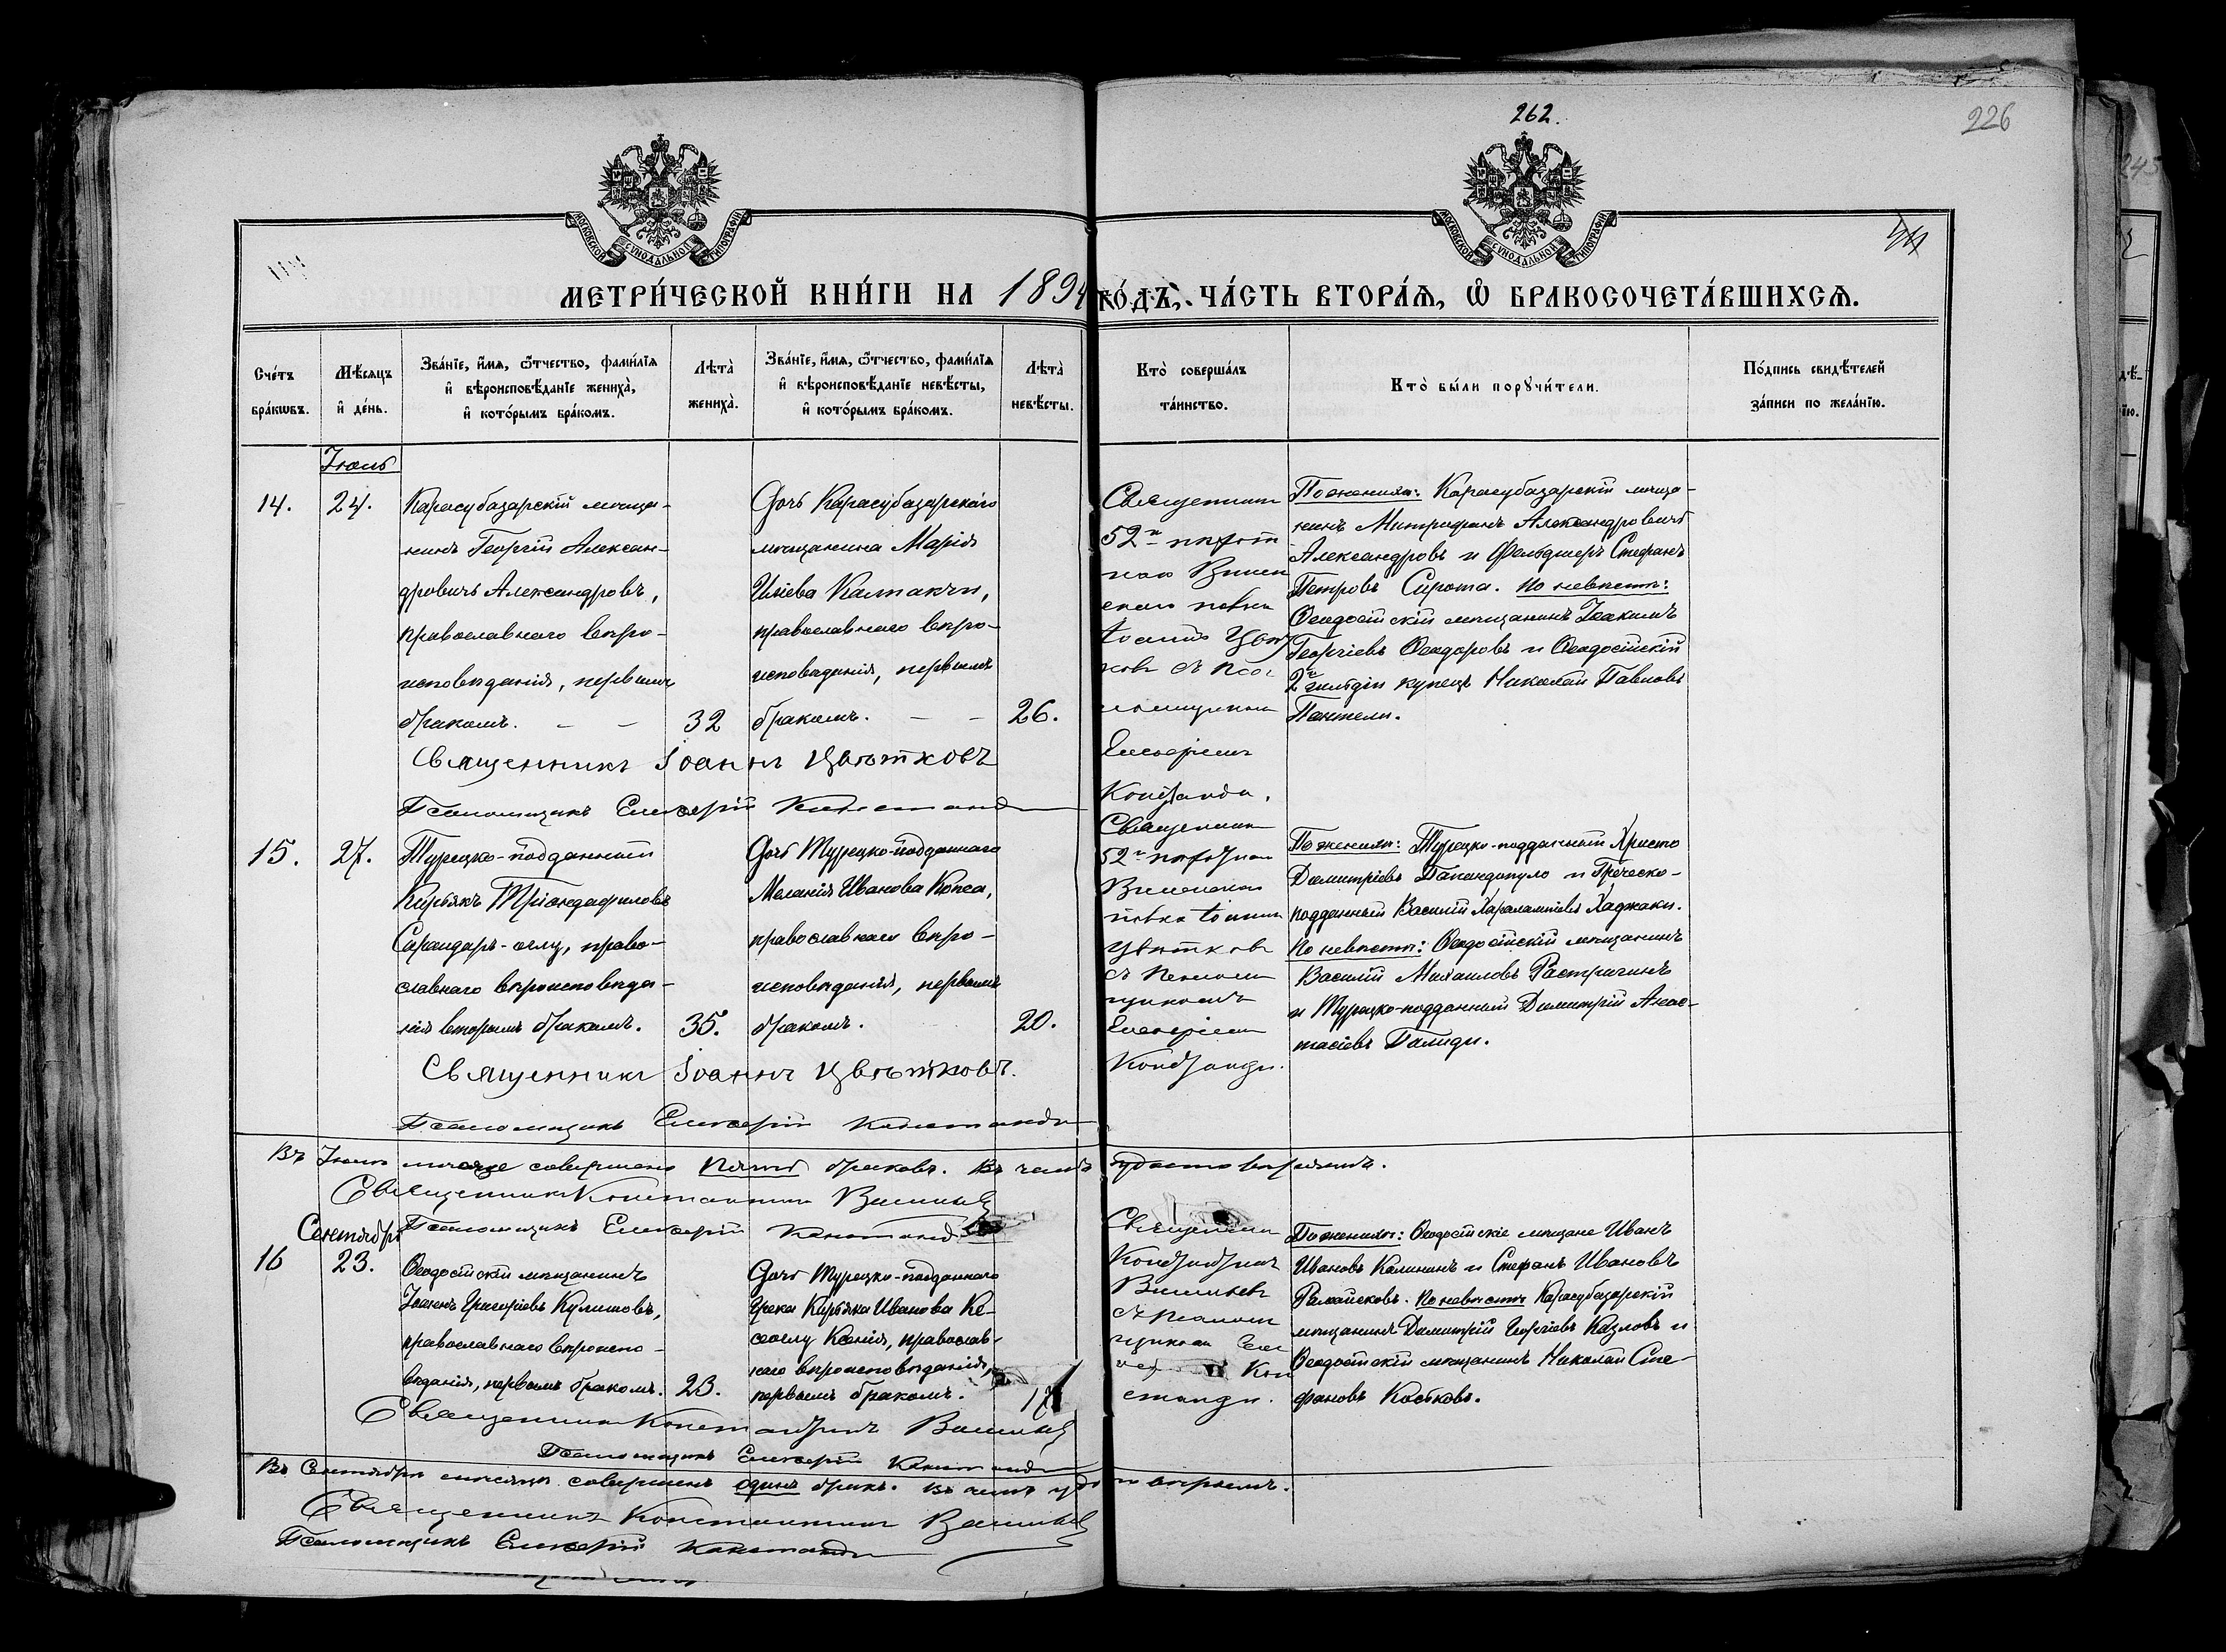 262.
226
МОСКОВСКОЙ СѴНОДАЛЬНОЙ ТИПОГРАФІИ
МОСКОВСКОЙ СѴНОДАЛЬНОЙ ТИПОГРАФІИ
МЕТРИ́ЧЕСКОЙ КНИ́ГИ НА 1894 ГО́ДЪ, ЧА́СТЬ ВТОРА́Я, Ѡ БРАКОСОЧЕТА́ВШИХСЯ.
Сче́тъ
бра́кѡвъ.
Мѣ́сяцъ
и҆ де́нь.
Зва́нїе, и҆́мя, ѻ҆́тчество, фами́лїя
и҆ вѣроисповѣ́данїе жениха̀,
и҆ кото́рымъ бра́комъ.
Лѣта̀
жениха̀.
Зва́нїе, и҆́мя, ѻ҆́тчество, фами́лїя
и҆ вѣроисповѣ́данїе невѣ́сты,
и҆ кото́рымъ бра́комъ.
Лѣта̀
невѣ́сты.
Кто̀ соверша́лъ
та́инство.
Кто̀ бы́ли порꙋчи́тели.
По́дпись свидѣ́телей
за́писи по жела́нїю.
Іюль
14.
24.
Карасубазарскій мѣща-
нинъ Георгій Алексан-
дровичъ Александровъ,
православнаго вѣро-
исповѣданія, первымъ
бракомъ. – –
32
Дочь Карасубазарскаго
мѣщанина Марія
Иліева Калтакчи,
православнаго вѣро-
исповѣданія, первымъ
бракомъ. – –
26.
Священникъ
52го пѣхот
наго Вилен
скаго полка
Іоаннъ Цвѣт
ковъ съ Пса
ломщикомъ
Елевѳеріемъ
Констанди.
По женихѣ: Карасубазарскій мѣща-
нинъ Митрофанъ Александровичъ
Александровъ и Фельдшеръ Стефанъ
Петровъ Сирота. По невѣстѣ:
Ѳеодосійскій мѣщанинъ Іоакимъ
Георгіевъ Ѳеодоровъ и Ѳеодосійскій
2й гильдіи купецъ Николай Павловъ
Пантели.
Священникъ Іоаннъ Цвѣтковъ
Псаломщикъ Елевѳерій Констанди
15.
27.
Турецко-подданный
Кирьякъ Тріандафиловъ
Сарандаръ-оглу, право-
славнаго вѣроисповѣда-
нія вторымъ бракомъ.
35.
Дочь Турецко-подданнаго
Меланія Иванова Копса,
православнаго вѣро-
исповѣданія, первымъ
бракомъ.
20.
Священникъ
52го пѣхотнаго
Виленскаго
полка Іоаннъ
Цвѣтковъ
съ Псалом
щикомъ
Елевѳеріемъ
Констанди.
По женихѣ: Турецко-подданный Христо
Димитріевъ Папандопуло и Греческо-
подданный Василій Харалампіевъ Хаджаки.
По невѣстѣ: Ѳеодосійскій мѣщанинъ
Василій Михаиловъ Растригинъ
и Турецко-подданный Димитрій Анас-
тасіевъ Палиди.
Священникъ Іоаннъ Цвѣтковъ.
Псаломщикъ Елевѳерій Констанди
Въ Іюлѣ мѣсяцѣ совершено пять браковъ. Въ чемъ удостовѣряемъ.
Священникъ Константинъ Васильевъ
Псаломщикъ Елевѳерій Констанди
Сентябрь
16
23.
Ѳеодосійскій мѣщанинъ
Іоаннъ Григоріевъ Кулишовъ,
православнаго вѣроиспо-
вѣданія, первымъ бракомъ.
23.
Дочь Турецко-подданнаго
Грека Кирьяка Иванова Ке-
сеоглу Ксенія, православ-
наго вѣроисповѣданія,
первымъ бракомъ.
17
Священникъ
Константинъ
Васильевъ
съ Псалом
щикомъ Еле
Кон
станди.
По женихѣ: Ѳеодосійскіе мѣщане Иванъ
Ивановъ Калининъ и Стефанъ Ивановъ
Рамайсковъ. По невѣстѣ Карасубазарскій
мѣщанинъ Димитрій Георгіевъ Казловъ и
Ѳеодосійскій мѣщанинъ Николай Сте-
фановъ Костковъ.
Священникъ Константинъ Васильевъ
Псаломщикъ Елевѳерій Констанди
Въ Сентябрѣ мѣсяцѣ совершенъ одинъ бракъ. Въ чемъ удостовѣряемъ.
Священникъ Константинъ Васильевъ
Псаломщикъ Елевѳерій Констанди